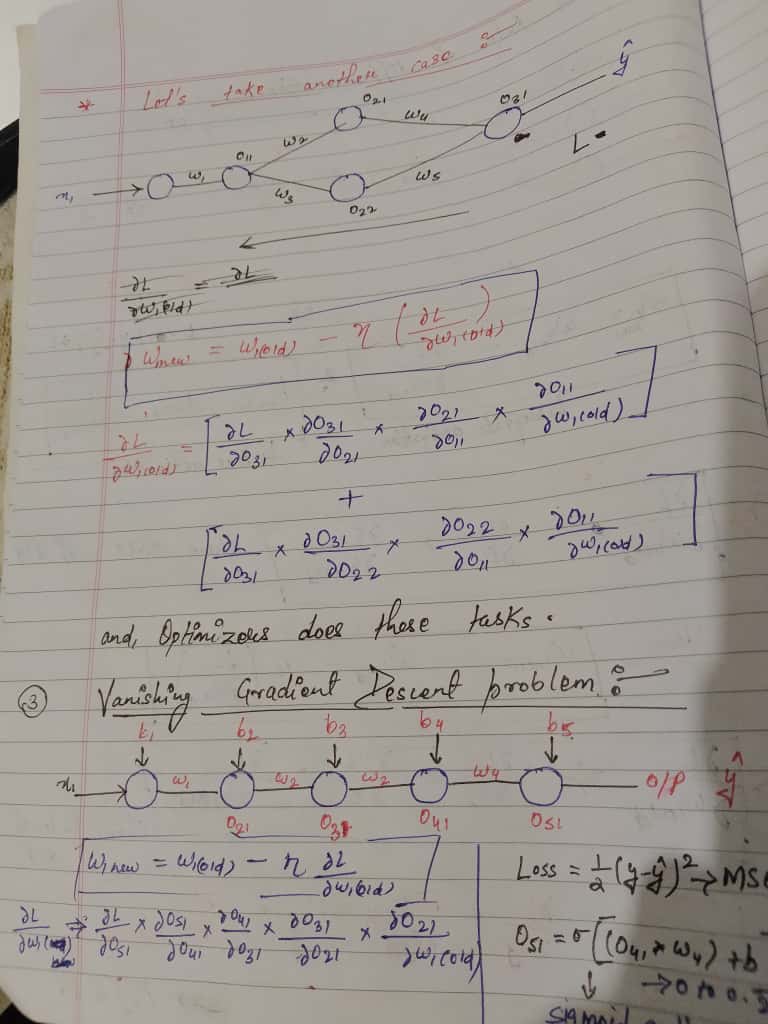 * Let's take another case :-
x₁ w₁ O₁₁ w₂ w₃ O₂₁ O₂₂ w₄ w₅ O₃₁ ŷ
L
∂L/∂w₁(old) = ∂L
w₁new = w₁(old) - η (∂L/∂w₁(old))
∂L/∂w₁(old) = [∂L/∂O₃₁ × ∂O₃₁/∂O₂₁ × ∂O₂₁/∂O₁₁ × ∂O₁₁/∂w₁(old)]
+
[∂L/∂O₃₁ × ∂O₃₁/∂O₂₂ × ∂O₂₂/∂O₁₁ × ∂O₁₁/∂w₁(old)]
and, Optimizers does these tasks.
③ Vanishing Gradient Descent problem :-
b₂ b₃ b₄ b₅
x₁ w₁ w₂ w₂ w₄ O/P ŷ
O₂₁ O₃₁ O₄₁ O₅₁
w₁new = w₁(old) - η ∂L/∂w₁(old)
∂L/∂w₁ ⇒ ∂L/∂O₅₁ × ∂O₅₁/∂O₄₁ × ∂O₄₁/∂O₃₁ × ∂O₃₁/∂O₂₁ × ∂O₂₁/∂w₁(old)
Loss = 1/2 (y-ŷ)² → MSE
O₅₁ = σ[(O₄₁ × w₄) + b
→ 0 to 0.
sigmoid